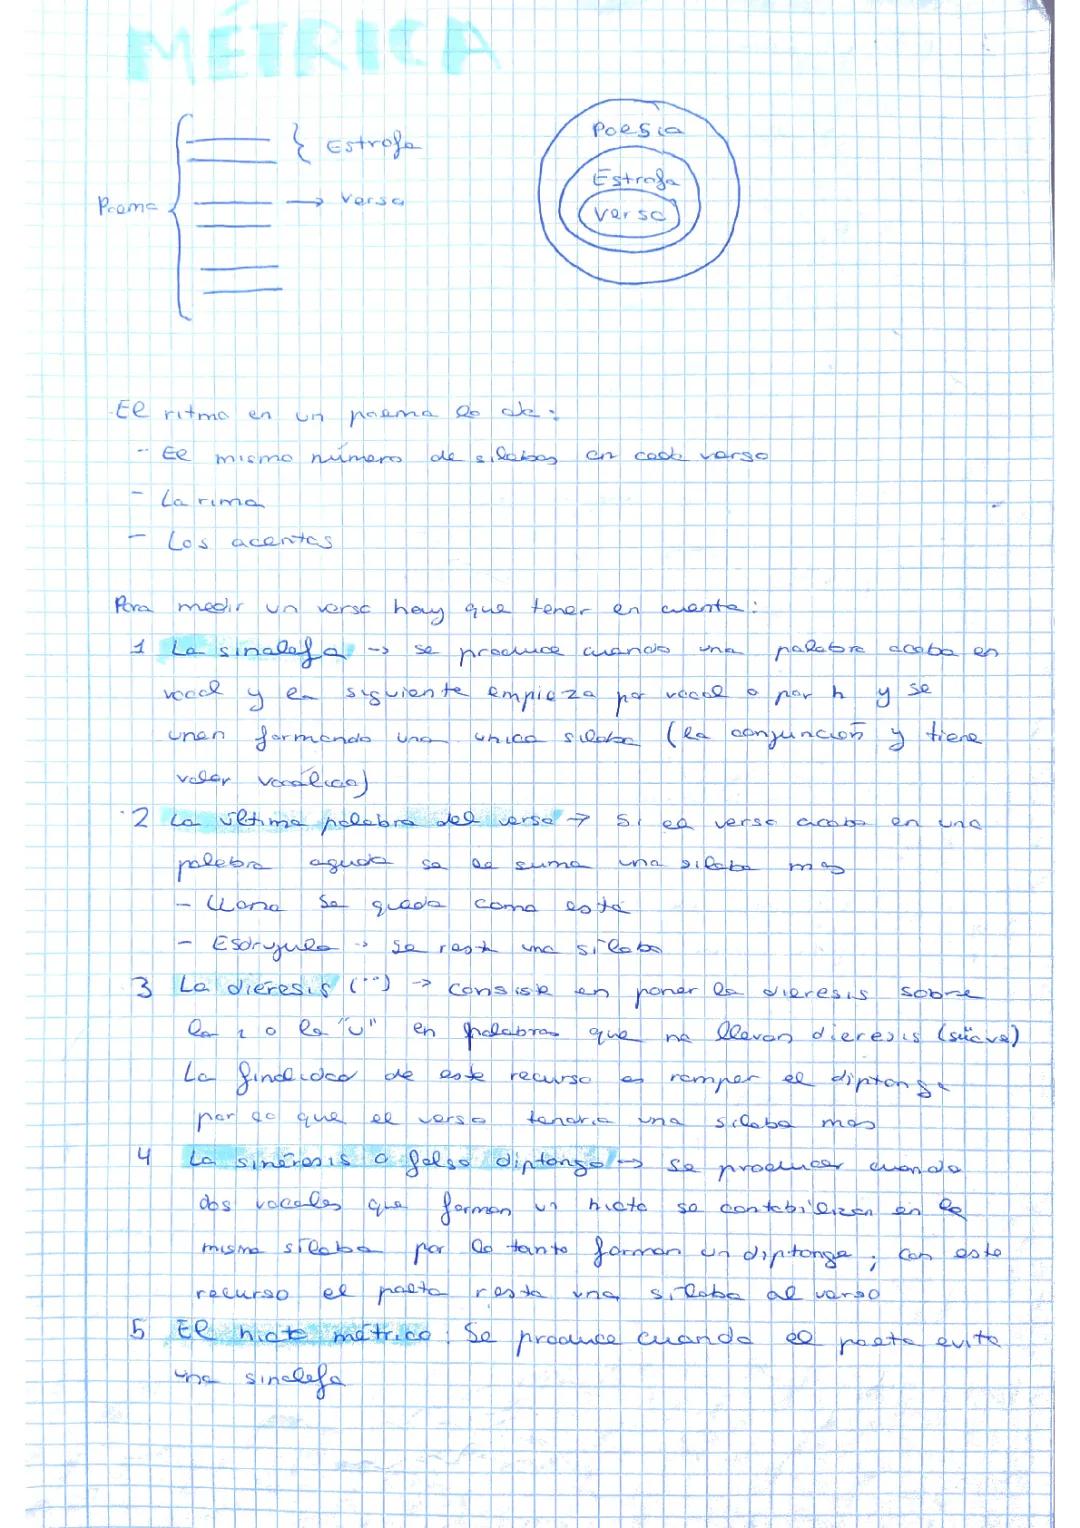 MÉTRICA
Poema
Estrofa
Verso
Poesia
Estrofa
Verso
El ritmo en un poema lo da:
- El mismo número de silabas en cada verso
- La rima
- Los acentos
Para medir un verso hay que tener en cuenta:
1 La sinalefa -> se produce cuando una palabra acaba en
vocal y la siguiente empieza por vocal o por h y se
unen formando una unica silaba (la conjunción y tiene
valor vocálico)
2 La última palabra del verso -> Si el verso acaba en una
palabra aguda se le suma una silaba mas
- Llana se queda como está
- Esdrújula -> se resta una sílaba
3 La diéresis (¨) -> consiste en poner la dieresis sobre
la i o la "u" en palabras que no llevan dieresis (süave)
La finalidad de este recurso es romper el diptongo
por lo que el verso tendria una silaba mas
4 La sinéresis o falso diptongo -> Se producer cuando
dos vocales que forman un hiato se contabilizan en la
misma sílaba por lo tanto forman un diptongo; con este
recurso el poeta resta una sílaba al verso
5 El hiato métrico: Se produce cuando el poeta evita
una sinalefa